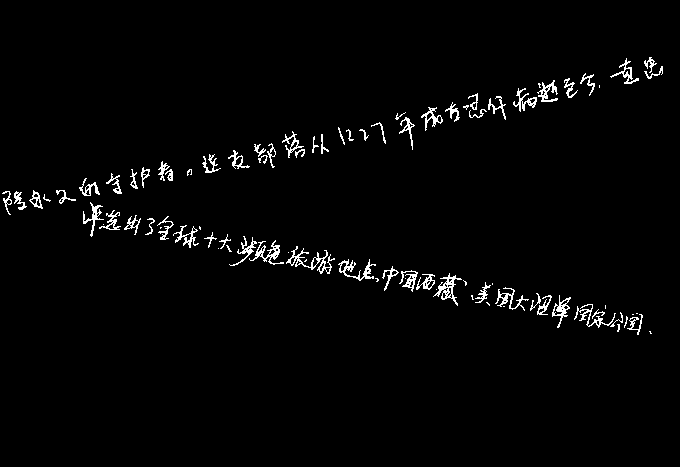 陵永久的守护者。这支部落从1227年成吉思汗病逝至今,一直忠
评选出了全球十大濒危旅游地点,中国西藏、美国大沼泽国家公园、